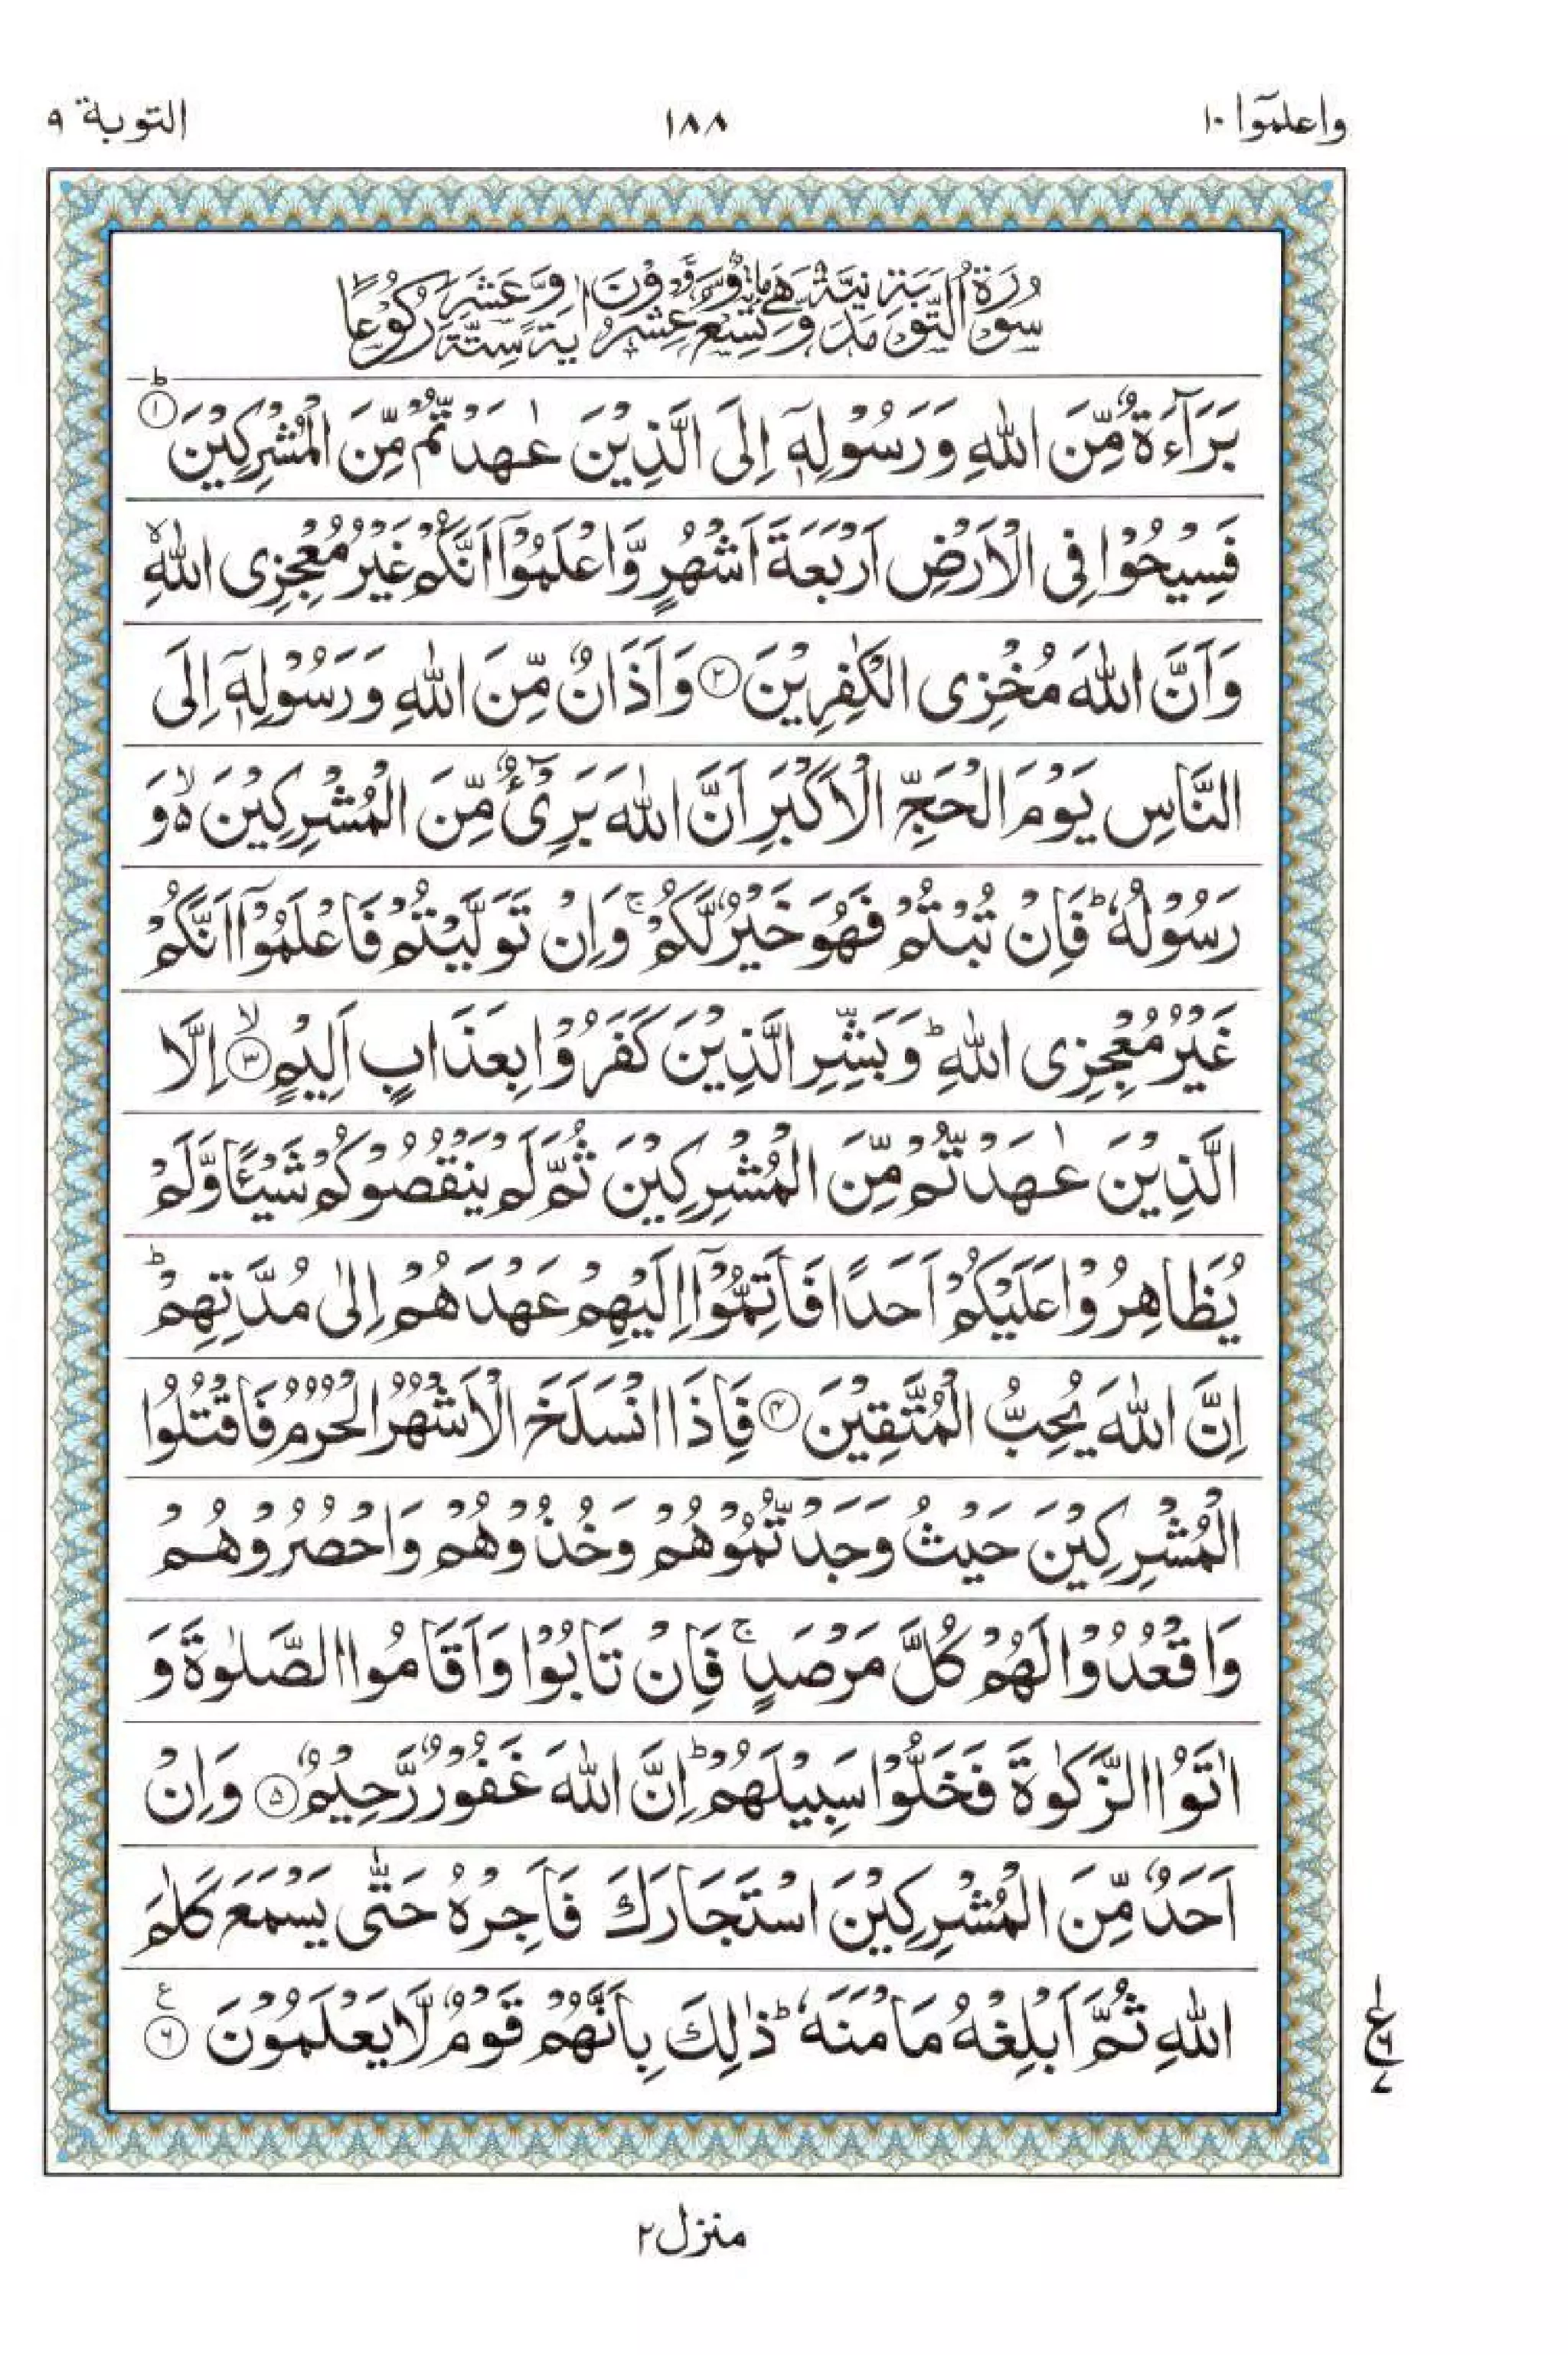 واعلموٓا ١٠
١٨٨
التوبة ٩
سُوْرَةُ التَّوْبَةِ مَدَنِيَّةٌ وَّهِيَ مِائَةٌ وَّتِسْعٌ وَّعِشْرُوْنَ اٰيَةً وَّسِتَّةَ عَشَرَ رُكُوْعًا
بَرَآءَةٌ مِّنَ اللّٰهِ وَرَسُوْلِهٖۤ اِلَى الَّذِيْنَ عٰهَدْتُّمْ مِّنَ الْمُشْرِكِيْنَ ؕ﴿۱﴾
فَسِيْحُوْا فِى الْاَرْضِ اَرْبَعَةَ اَشْهُرٍ وَّاعْلَمُوْۤا اَنَّكُمْ غَيْرُ مُعْجِزِى اللّٰهِ ۙ
وَاَنَّ اللّٰهَ مُخْزِى الْكٰفِرِيْنَ ﴿۲﴾ وَاَذَانٌ مِّنَ اللّٰهِ وَرَسُوْلِهٖۤ اِلَى
النَّاسِ يَوْمَ الْحَجِّ الْاَكْبَرِ اَنَّ اللّٰهَ بَرِىْٓءٌ مِّنَ الْمُشْرِكِيْنَ ۙ۬ وَ
رَسُوْلُهٗ ؕ فَاِنْ تُبْتُمْ فَهُوَ خَيْرٌ لَّكُمْ ۚ وَاِنْ تَوَلَّيْتُمْ فَاعْلَمُوْۤا اَنَّكُمْ
غَيْرُ مُعْجِزِى اللّٰهِ ؕ وَبَشِّرِ الَّذِيْنَ كَفَرُوْا بِعَذَابٍ اَلِيْمٍ ۙ﴿۳﴾ اِلَّا
الَّذِيْنَ عٰهَدْتُّمْ مِّنَ الْمُشْرِكِيْنَ ثُمَّ لَمْ يَنْقُصُوْكُمْ شَيْـًٔا وَّلَمْ
يُظَاهِرُوْا عَلَيْكُمْ اَحَدًا فَاَتِمُّوْۤا اِلَيْهِمْ عَهْدَهُمْ اِلٰى مُدَّتِهِمْ ؕ
اِنَّ اللّٰهَ يُحِبُّ الْمُتَّقِيْنَ ﴿۴﴾ فَاِذَا انْسَلَخَ الْاَشْهُرُ الْحُرُمُ فَاقْتُلُوا
الْمُشْرِكِيْنَ حَيْثُ وَجَدْتُّمُوْهُمْ وَخُذُوْهُمْ وَاحْصُرُوْهُمْ
وَاقْعُدُوْا لَهُمْ كُلَّ مَرْصَدٍ ۚ فَاِنْ تَابُوْا وَاَقَامُوا الصَّلٰوةَ وَ
اٰتَوُا الزَّكٰوةَ فَخَلُّوْا سَبِيْلَهُمْ ؕ اِنَّ اللّٰهَ غَفُوْرٌ رَّحِيْمٌ ﴿۵﴾ وَاِنْ
اَحَدٌ مِّنَ الْمُشْرِكِيْنَ اسْتَجَارَكَ فَاَجِرْهُ حَتّٰى يَسْمَعَ كَلٰمَ
اللّٰهِ ثُمَّ اَبْلِغْهُ مَاْمَنَهٗ ؕ ذٰلِكَ بِاَنَّهُمْ قَوْمٌ لَّا يَعْلَمُوْنَ ﴿۶﴾ ع
١
ع ٦
٧
منزل ٢